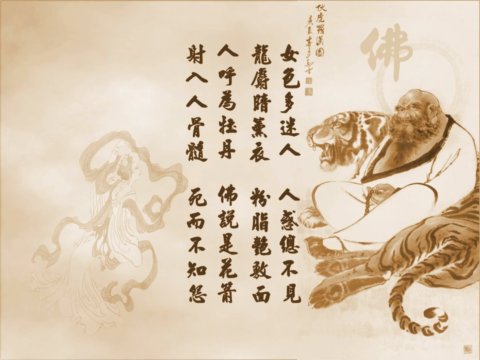 佛
伏虎羅漢圖
女色多迷人 人惑總不見
龍麝暗薰衣 粉脂艷敷面
人呼為牡丹 佛說是花箭
射入人骨髓 死而不知怨